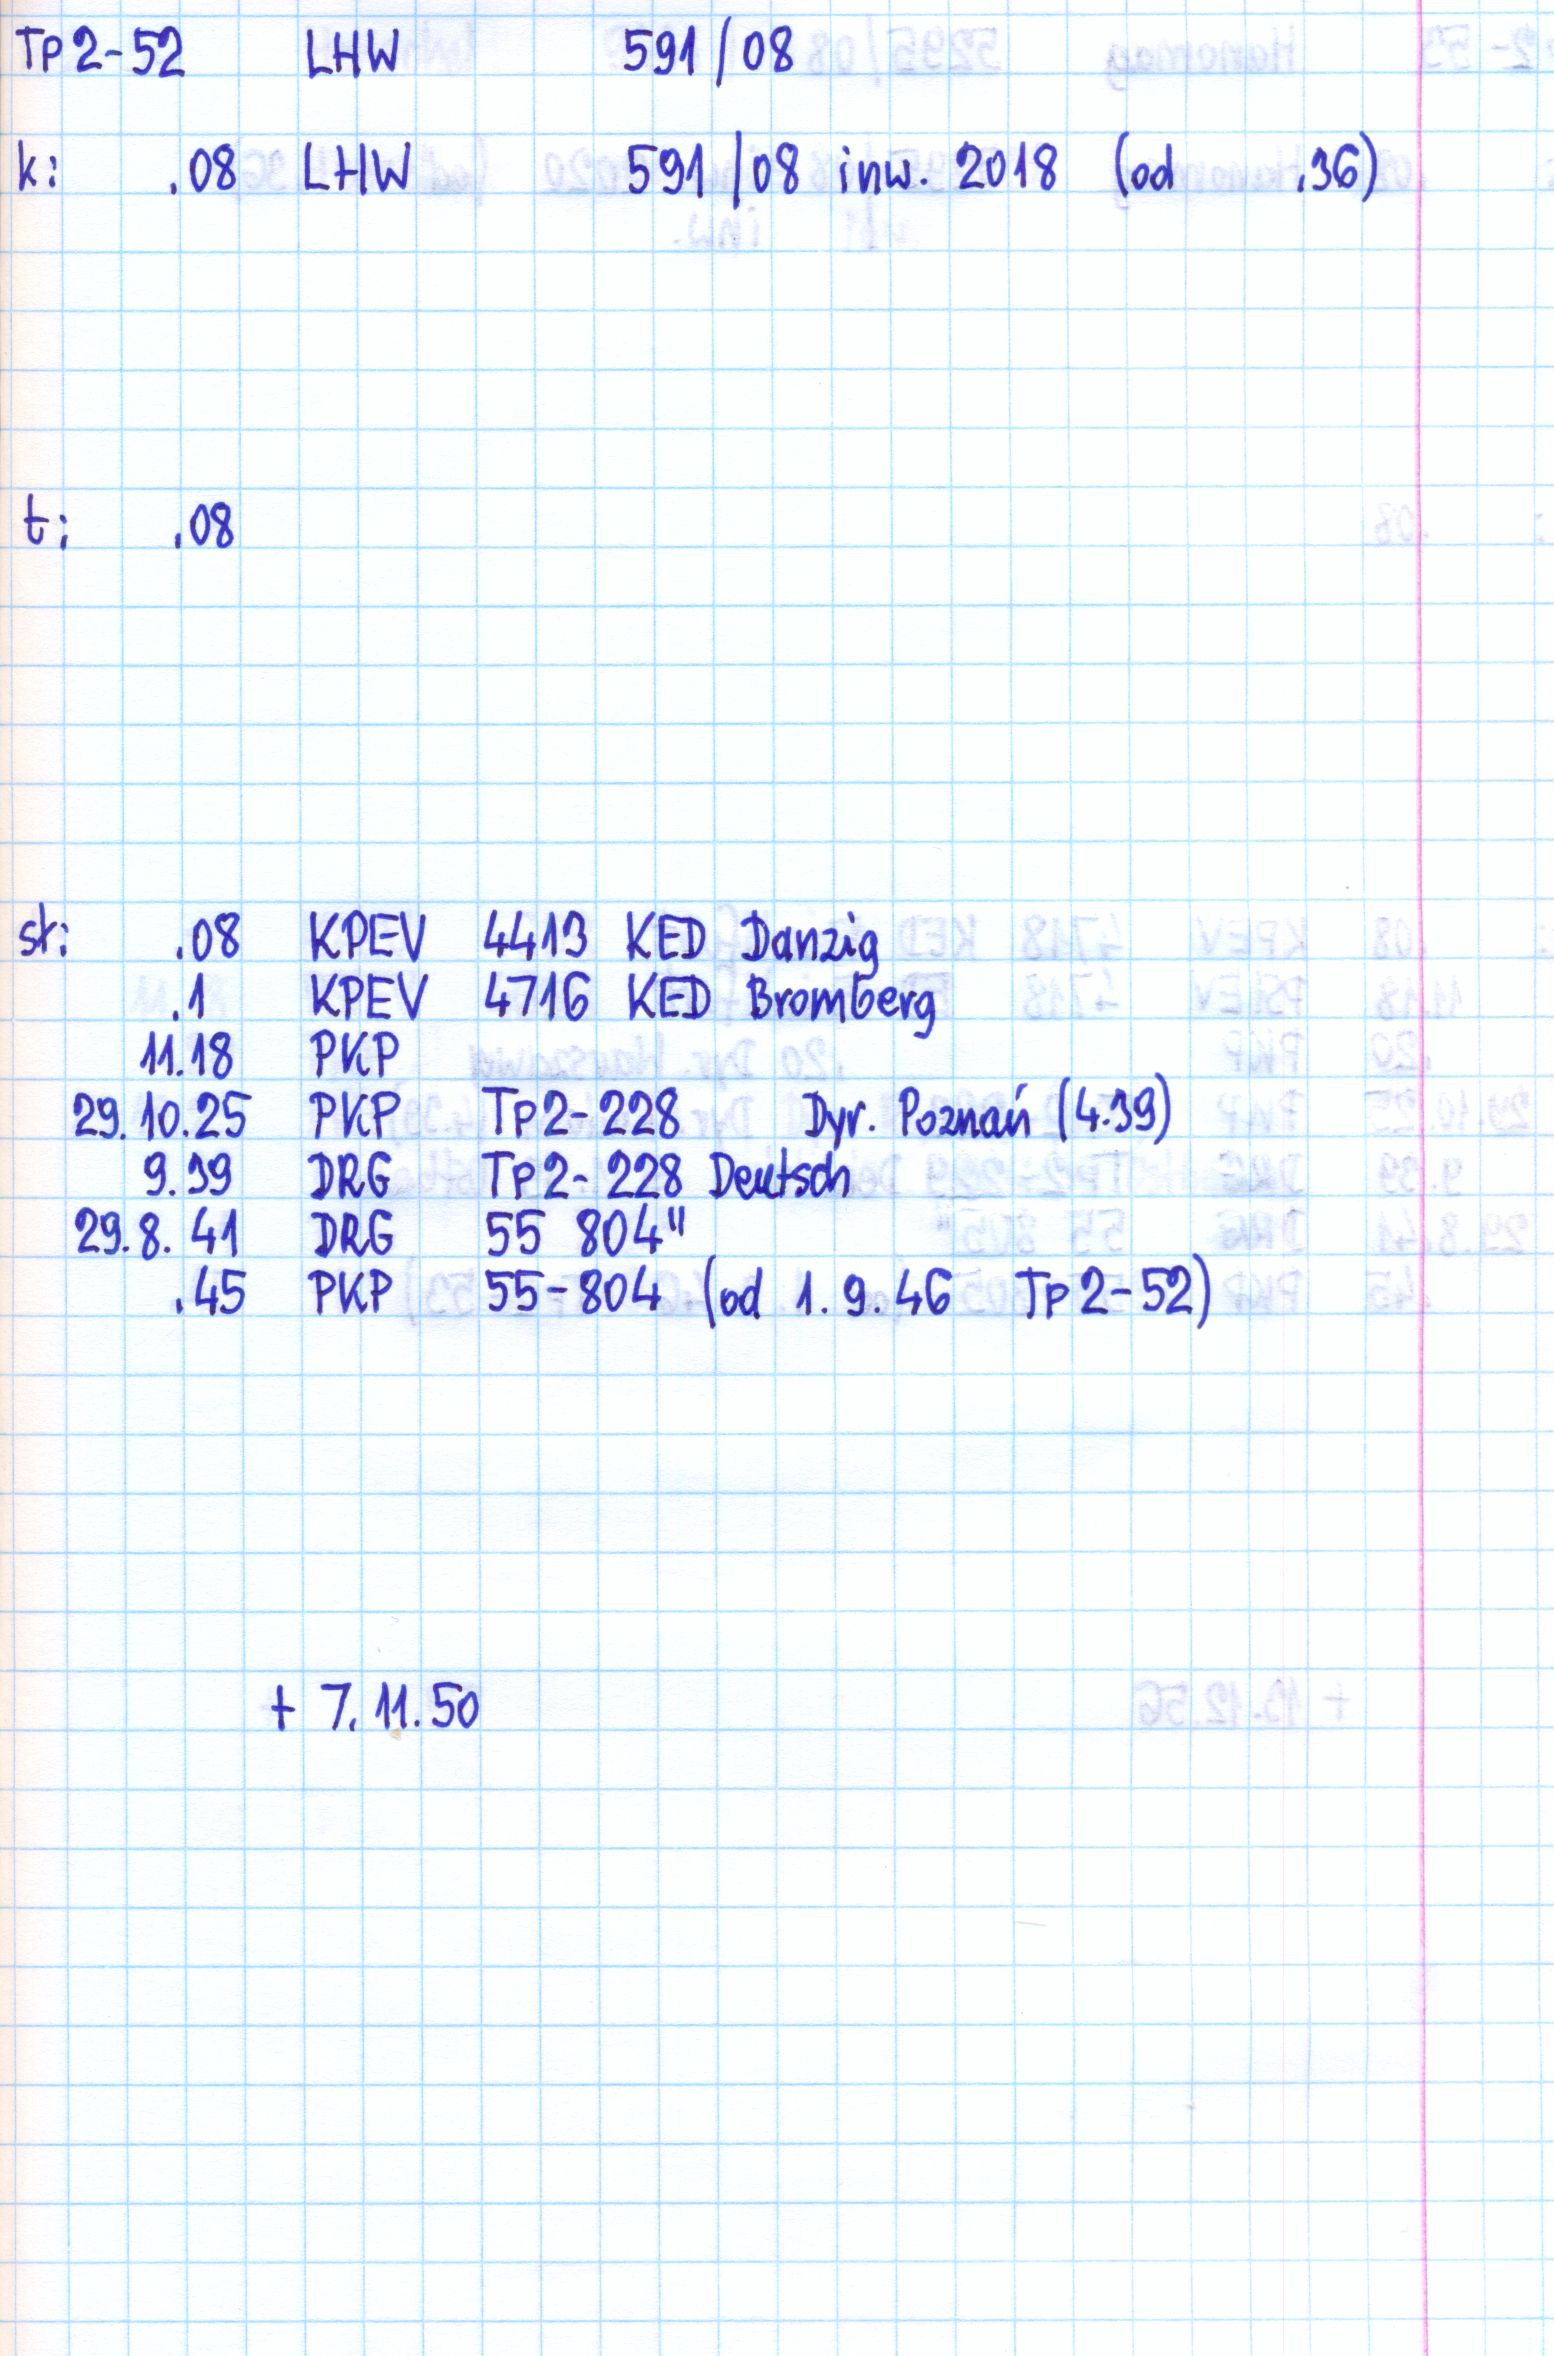 Tp2-52 LHW 591/08
k: .08 LHW 591/08 inw. 2018 (od .36)
t: .08
st: .08 KPEV 4413 KED Danzig
.1 KPEV 4716 KED Bromberg
11.18 PKP
29.10.25 PKP Tp2-228 Dyr. Poznań (4.39)
9.39 DRG Tp2-228 Deutsch
29.8.41 DRG 55 804"
.45 PKP 55-804 (od 1.9.46 Tp2-52)
+ 7.11.50